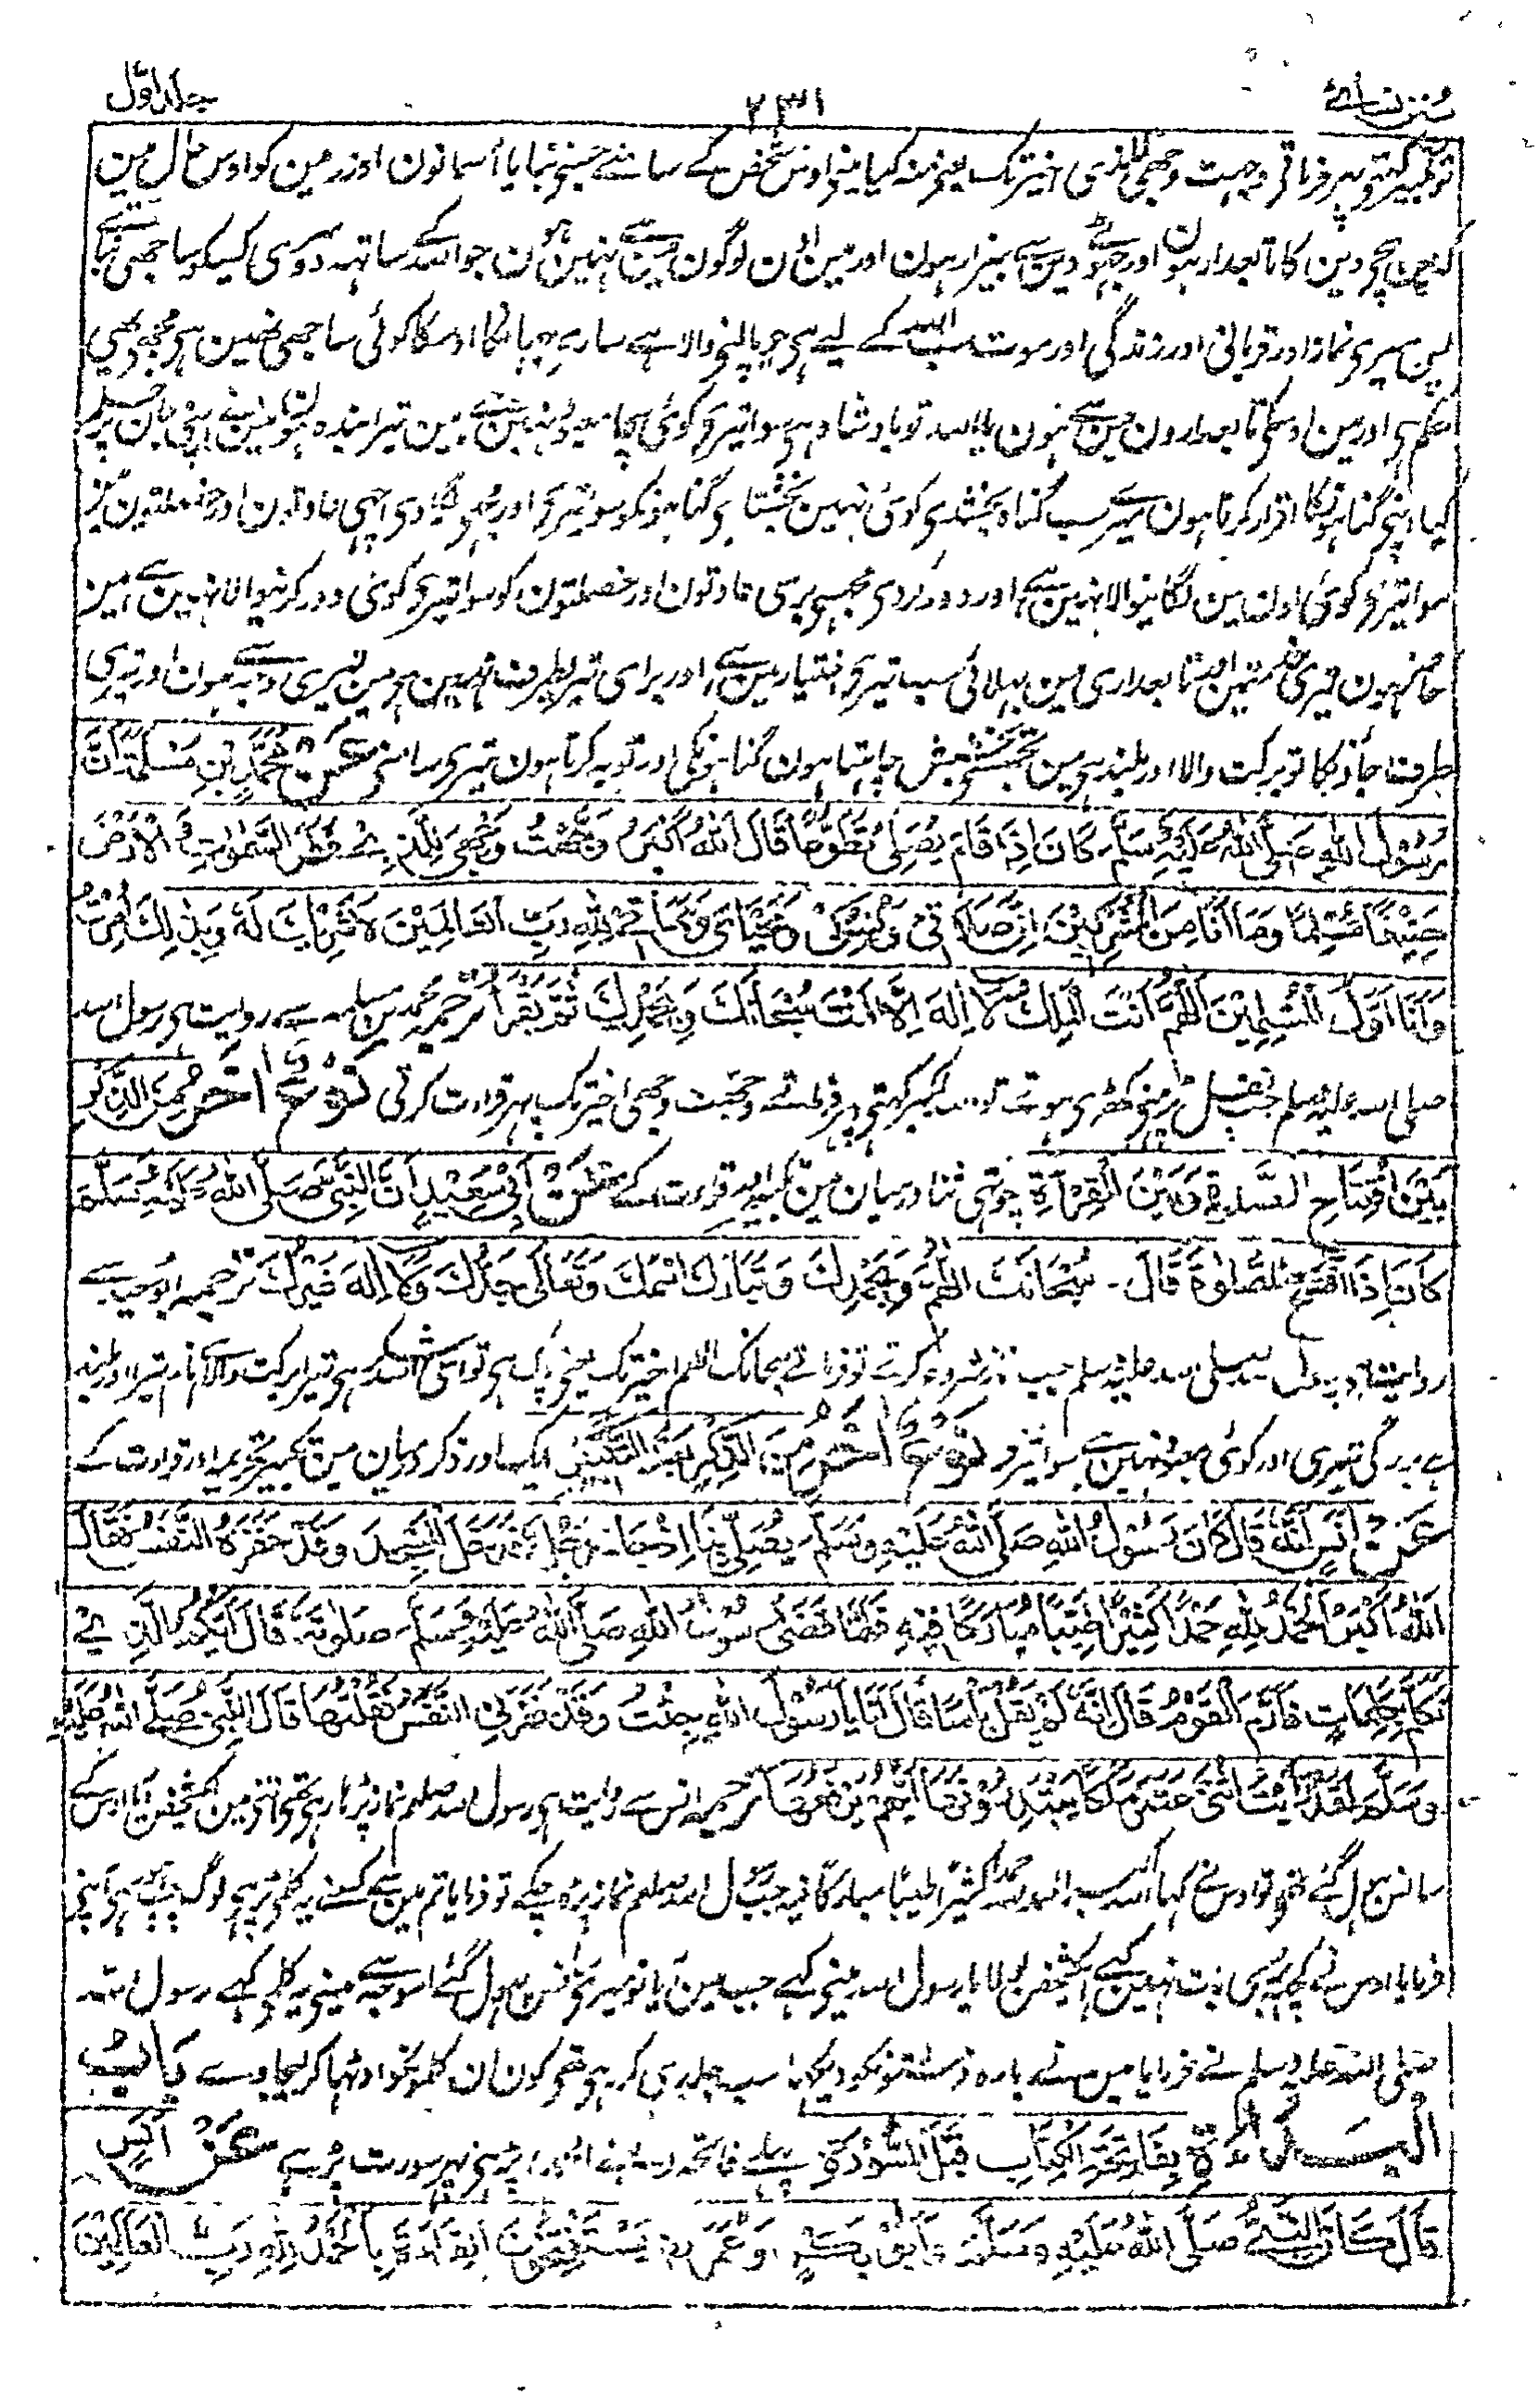 سنن نسائی ۲۳۱ جلد اول
تو تکبیر کہتے پہر فرماتے وجہت وجہی للذی اخیر تک یعنی منہ کیا مینے اوس شخص کے سامنے جسنے بنایا آسمانون اور زمین کو اوس حال مین
کہ مین سچے دین کا تابعدار ہون اور جہوٹے دین سے بیزار ہون اور مین اون لوگون مین سے نہین ہون جو اللہ کے ساتھ دوسری کسیکو ساجھی بناتے
ہین میری نماز اور قربانی اور زندگی اور موت سب اللہ کے لیے ہی جو پالنے والا ہے سارے جہانکا اوسکا کوئی ساجھی نہین ہی مجھے یہی
حکم ہی اور مین اوسکے تابعدارون مین سے ہون یا اللہ تو بادشاہ ہی سوا تیرے کوئی سچا معبود نہین ہے مین تیرا بندہ ہون مینے اپنی جان پر ظلم
کیا اپنے گناہونکا اقرار کرتا ہون میرے سب گناہ بخشدی کوئی نہین بخشتا ہی گناہونکو سوا تیرے اور مجہے لگا دی اچہی عادتون اور خصلتون مین
سوا تیرے کوئی اون مین لگانیوالا نہین ہے اور دور کردی مجھسے بری عادتون اور خصلتون کو سوا تیرے کوئی دور کرنیوالا نہین ہے مین
حاضر ہون تیری خدمتمین اور تابعداری مین بہلائی سب تیرے اختیار مین ہے اور برائی تیری طرف نہین ہی مین تیری وجہ سے ہون اور تیری
طرف جاؤنگا تو برکت والا اور بلند ہی مین تجھسے بخشش چاہتا ہون گناہونکی اور توبہ کرتا ہون تیری سامنے عَنْ مُحَمَّدِ بْنِ مَسْلَمَةَ اَنَّ
رَسُوْلَ اللّٰهِ صَلَّی اللّٰهُ عَلَیْهِ وَسَلَّمَ کَانَ اِذَا قَامَ یُصَلِّیْ تَطَوُّعًا قَالَ اَللّٰهُ اَکْبَرُ وَجَّهْتُ وَجْهِیَ لِلَّذِیْ فَطَرَ السَّمٰوٰتِ وَ الْاَرْضَ
حَنِیْفًا مُّسْلِمًا وَمَا اَنَا مِنَ الْمُشْرِکِیْنَ اِنَّ صَلَاتِیْ وَنُسُکِیْ وَمَحْیَایَ وَمَمَاتِیْ لِلّٰهِ رَبِّ الْعَالَمِیْنَ لَا شَرِیْكَ لَهٗ وَبِذٰلِكَ اُمِرْتُ
وَاَنَا اَوَّلُ الْمُسْلِمِیْنَ اَللّٰهُمَّ اَنْتَ الْمَلِكُ لَا اِلٰهَ اِلَّا اَنْتَ سُبْحَانَكَ وَبِحَمْدِكَ ثُمَّ یَقْرَأُ ترجمہ محمد بن مسلمہ سے روایت ہی رسول اللہ
صلی اللہ علیہ وسلم جب نفل پڑہنے کھڑی ہوتے تو اللہ اکبر کہتے پہر فرماتے وجہت وجہی اخیر تک پہر قراءت کرتی نَوْعٌ اٰخَرُ مِنَ الذِّکْرِ
بَیْنَ افْتِتَاحِ الصَّلٰوةِ وَبَیْنَ الْقِرَاءَةِ چوتہی ثنا درمیان مین تکبیر اور قراءت کے عَنْ اَبِیْ سَعِیْدٍ اَنَّ النَّبِیَّ صَلَّی اللّٰهُ عَلَیْهِ وَسَلَّمَ
کَانَ اِذَا افْتَتَحَ الصَّلٰوةَ قَالَ - سُبْحَانَكَ اللّٰهُمَّ وَبِحَمْدِكَ وَتَبَارَكَ اسْمُكَ وَتَعَالٰی جَدُّكَ وَلَا اِلٰهَ غَیْرُكَ ترجمہ ابو سعید سے
روایت ہی رسول اللہ صلی اللہ علیہ وسلم جب نماز شروع کرتے تو فرماتے سبحانک اللہم اخیر تک یعنی پاک ہی تو ای اللہ شکر ہی تیرا برکت والا ہی نام تیرا اور بلند
ہے بزرگی تیری اور کوئی معبود نہین ہے سوا تیرے نَوْعٌ اٰخَرُ مِنَ الذِّکْرِ بَعْدَ التَّکْبِیْرِ ایک اور ذکر درمیان مین تکبیر تحریمہ اور قراءت کے
عَنْ اَنَسٍ اَنَّهٗ قَالَ کَانَ رَسُوْلُ اللّٰهِ صَلَّی اللّٰهُ عَلَیْهِ وَسَلَّمَ یُصَلِّیْ بِنَا اِذْ جَاءَ رَجُلٌ فَدَخَلَ الْمَسْجِدَ وَقَدْ حَفَزَهُ النَّفَسُ فَقَالَ
اَللّٰهُ اَکْبَرُ اَلْحَمْدُ لِلّٰهِ حَمْدًا کَثِیْرًا طَیِّبًا مُّبَارَکًا فِیْهِ فَلَمَّا قَضٰی رَسُوْلُ اللّٰهِ صَلَّی اللّٰهُ عَلَیْهِ وَسَلَّمَ صَلٰوتَهٗ قَالَ اَیُّکُمُ الَّذِیْ
تَکَلَّمَ بِکَلِمَاتٍ فَاَرَمَّ الْقَوْمُ قَالَ اِنَّهٗ لَمْ یَقُلْ بَاْسًا قَالَ اَنَا یَا رَسُوْلَ اللّٰهِ جِئْتُ وَقَدْ حَفَزَنِی النَّفَسُ فَقُلْتُهَا قَالَ النَّبِیُّ صَلَّی اللّٰهُ عَلَیْهِ
وَسَلَّمَ لَقَدْ رَاَیْتُ اثْنَیْ عَشَرَ مَلَکًا یَبْتَدِرُوْنَهَا اَیُّهُمْ یَرْفَعُهَا ترجمہ انس سے روایت ہی رسول اللہ صلعم نماز پڑہا رہی تھی اتنے مین ایک شخص آیا اوس کے
سانس پہول گئے تھے تو اوس نے کہا اللہ اکبر الحمد للہ حمدا کثیرا طیبا مبارکا فیہ جب رسول اللہ صلعم نماز پڑہ چکے تو فرمایا تم مین سے کسنے یہ کلمے پڑہے لوگ چپ ہو رہے آپنے
فرمایا اوس نے کچھ بری بات نہین کہے ایک شخص بولا یا رسول اللہ مینے کہے جب مین آیا تو میری سانس پہول گئے اس وجہ سے مینے یہ کلمے کہے رسول اللہ
صلی اللہ علیہ وسلم نے فرمایا مین نے بارہ فرشتونکو دیکھا سب جلدی کر رہی تھے کون ان کلمونکو اوٹھا کر لیجاوے بَابُ
الْبَدَاءَةِ بِفَاتِحَةِ الْکِتَابِ قَبْلَ السُّوْرَةِ پہلے فاتحہ پڑہے پہر سورت پڑہے عَنْ اَنَسٍ
قَالَ کَانَ النَّبِیُّ صَلَّی اللّٰهُ عَلَیْهِ وَسَلَّمَ وَاَبُوْ بَکْرٍ وَعُمَرُ یَسْتَفْتِحُوْنَ الْقِرَاءَةَ بِاَلْحَمْدُ لِلّٰهِ رَبِّ الْعَالَمِیْنَ